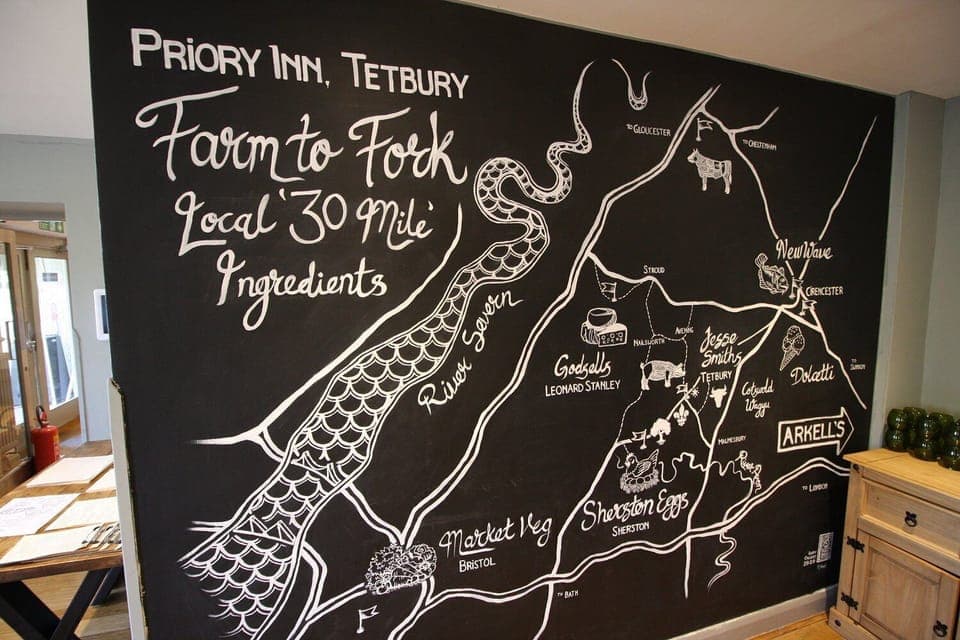 PRIORY INN, TETBURY
Farm to Fork
Local '30 Mile'
Ingredients
TO GLOUCESTER
TO CHELTENHAM
New Wave
CIRENCESTER
STROUD
River Severn
AVENING
NAILSWORTH
Jesse
Smiths
TETBURY
Godsells
LEONARD STANLEY
Dolcetti
TO SWINDON
Cotswold
Wagyu
ARKELL'S
MALMESBURY
TO LONDON
Sherston Eggs
SHERSTON
Market Veg
BRISTOL
TO BATH